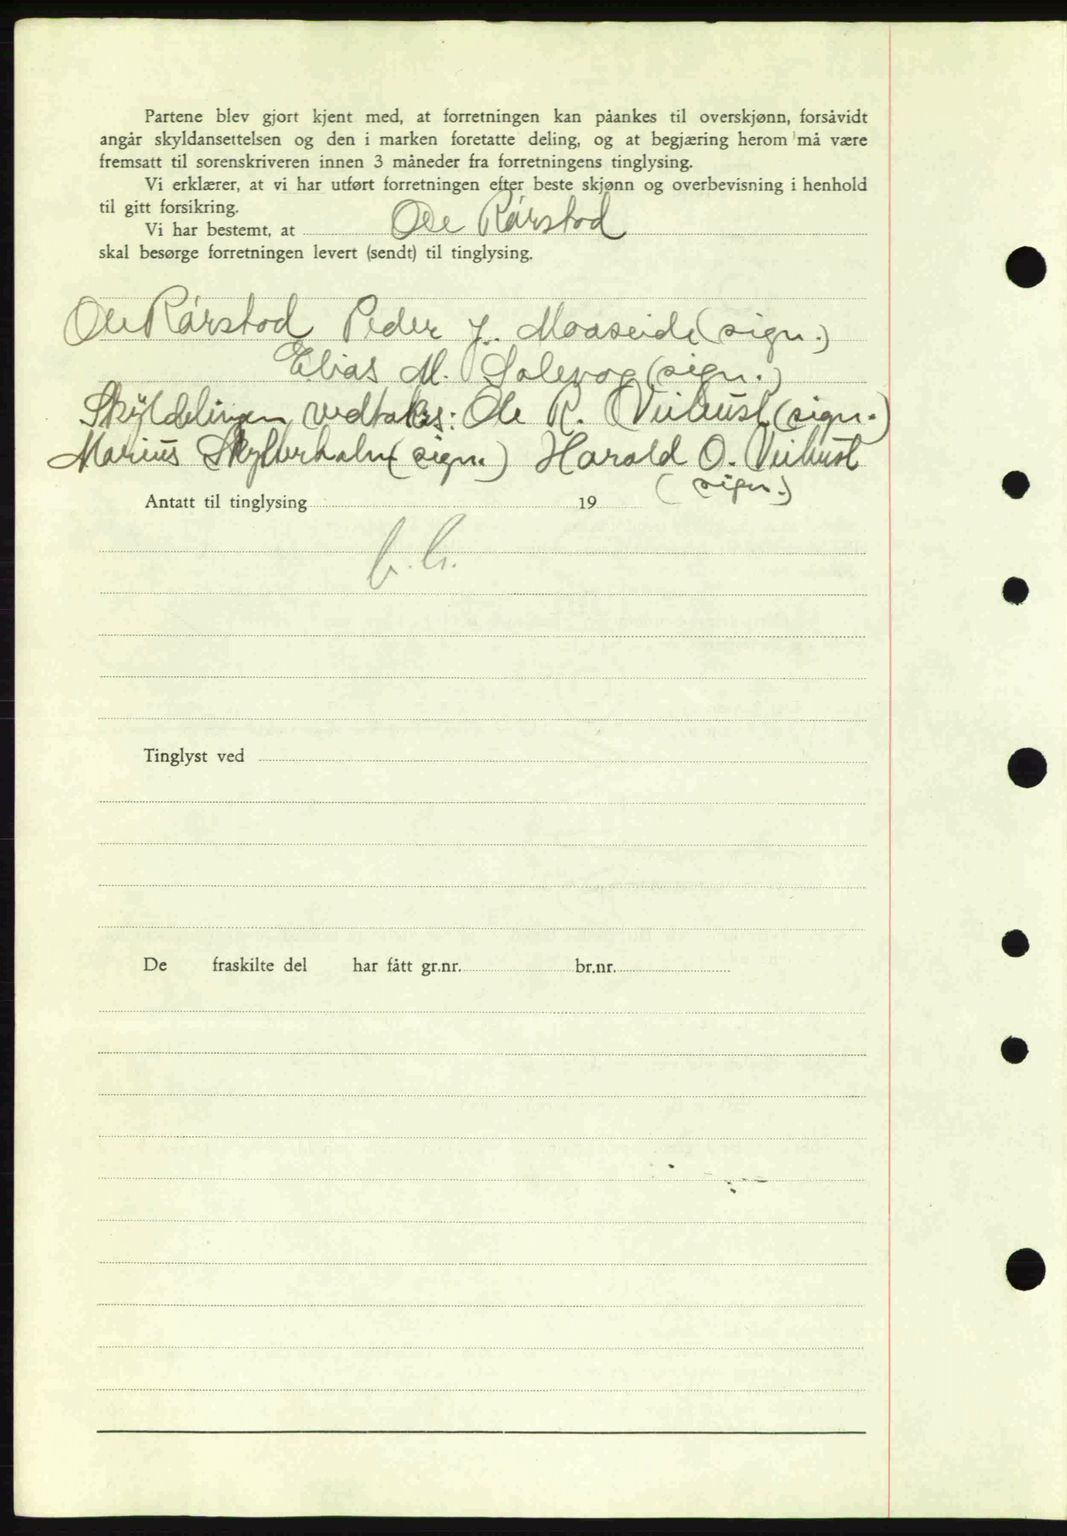 Partene blev gjort kjent med, at forretningen kan påankes til overskjønn, forsåvidt
angår skyldansettelsen og den i marken foretatte deling, og at begjæring herom må være
fremsatt til sorenskriveren innen 3 måneder fra forretningens tinglysing.
Vi erklærer, at vi har utført forretningen efter beste skjønn og overbevisning i henhold
til gitt forsikring.
Vi har bestemt, at Ole Rårstod
skal besørge forretningen levert (sendt) til tinglysing.
Ole Rårstod Peder J. Moaseide (sign.)
Elias M. Solevog (sign.)
Skyldelingen vedtakes: Ole R. (sign.)
Marius (sign.) Harald O.
(sign.)
Antatt til tinglysing 19
Tinglyst ved
De fraskilte del har fått gr.nr. br.nr.